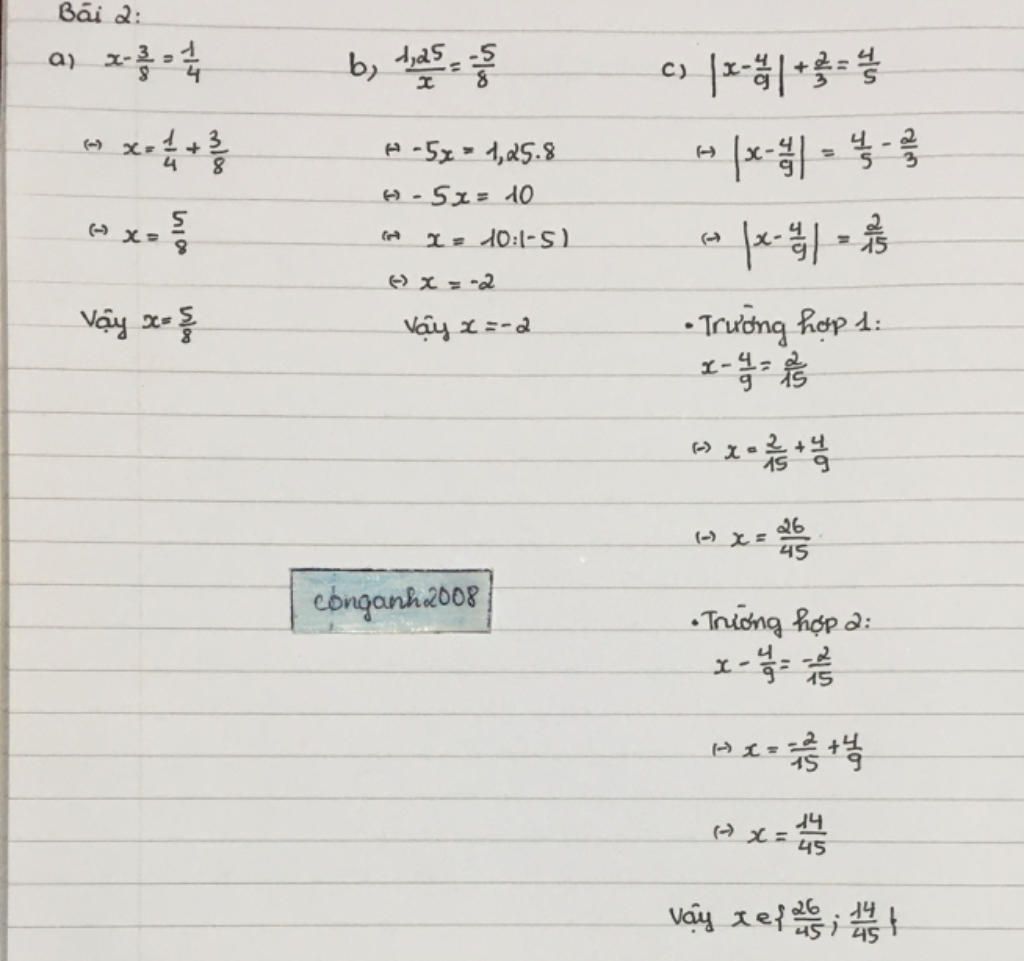 Bài 2:
a) x - 3/8 = 1/4
(-) x = 1/4 + 3/8
(-) x = 5/8
Vậy x = 5/8
b, 1,25/x = -5/8
(-) -5x = 1,25.8
(-) -5x = 10
(-) x = 10:(-5)
(-) x = -2
Vậy x = -2
c) |x - 4/9| + 2/3 = 4/5
(-) |x - 4/9| = 4/5 - 2/3
(-) |x - 4/9| = 2/15
• Trường hợp 1:
x - 4/9 = 2/15
(-) x = 2/15 + 4/9
(-) x = 26/45
• Trường hợp 2:
x - 4/9 = -2/15
(-) x = -2/15 + 4/9
(-) x = 14/45
Vậy x ∈ {26/45 ; 14/45}
conganh2008